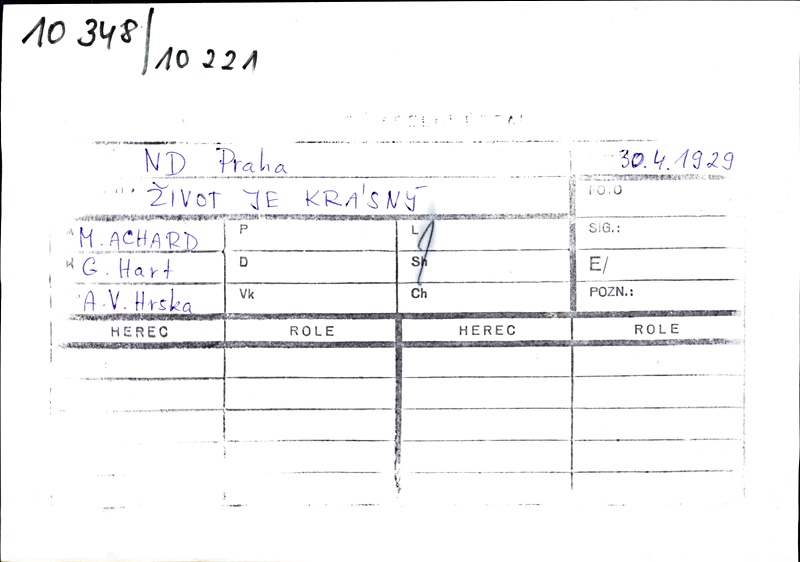 10 348/
10 221
ND Praha 30.4.1929
ŽIVOT JE KRÁSNÝ
M. ACHARD P L SIG.:
G. Hart D Sh E/
A.V. Hrska Vk Ch POZN.:
HEREC ROLE HEREC ROLE